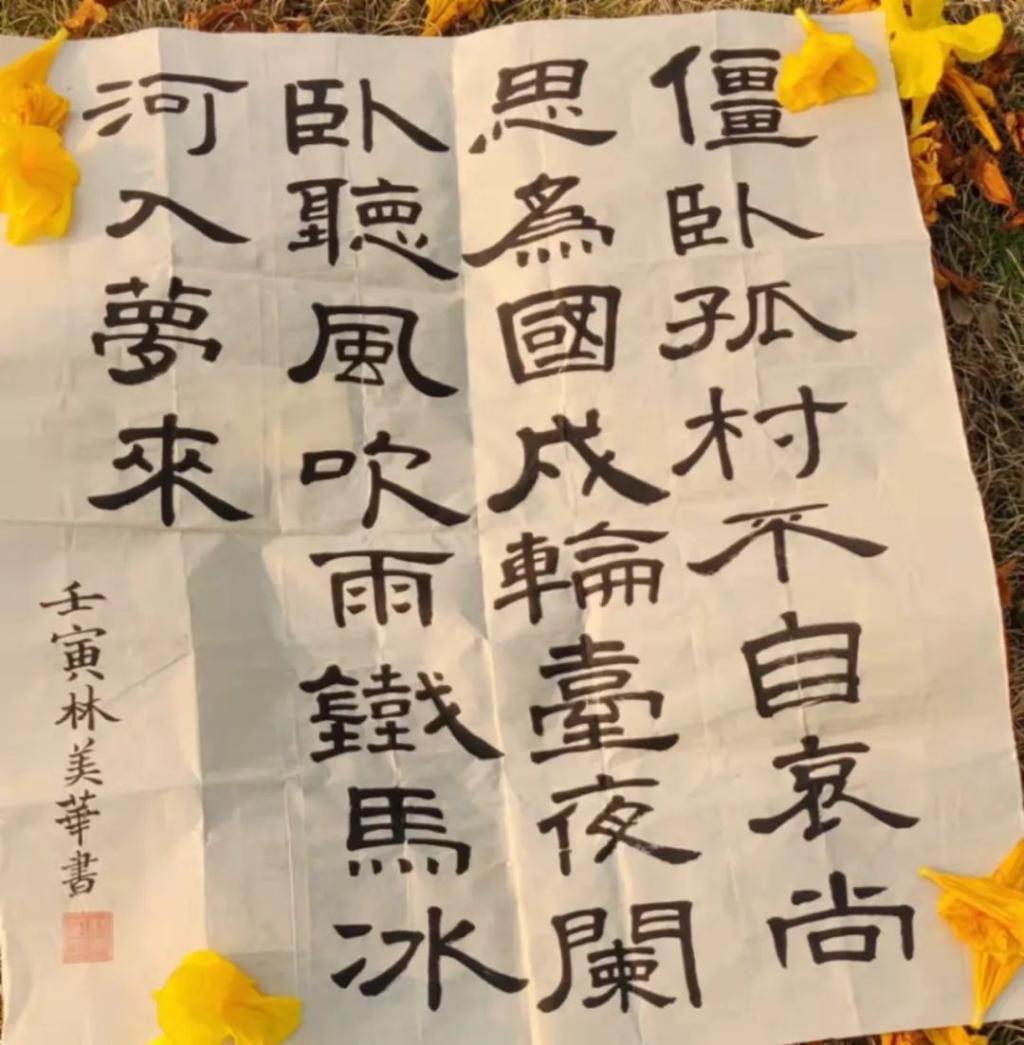 僵卧孤村不自哀尚
思為國戍輪臺夜闌
卧聽風吹雨鐵馬冰
河入夢來
壬寅林美華書